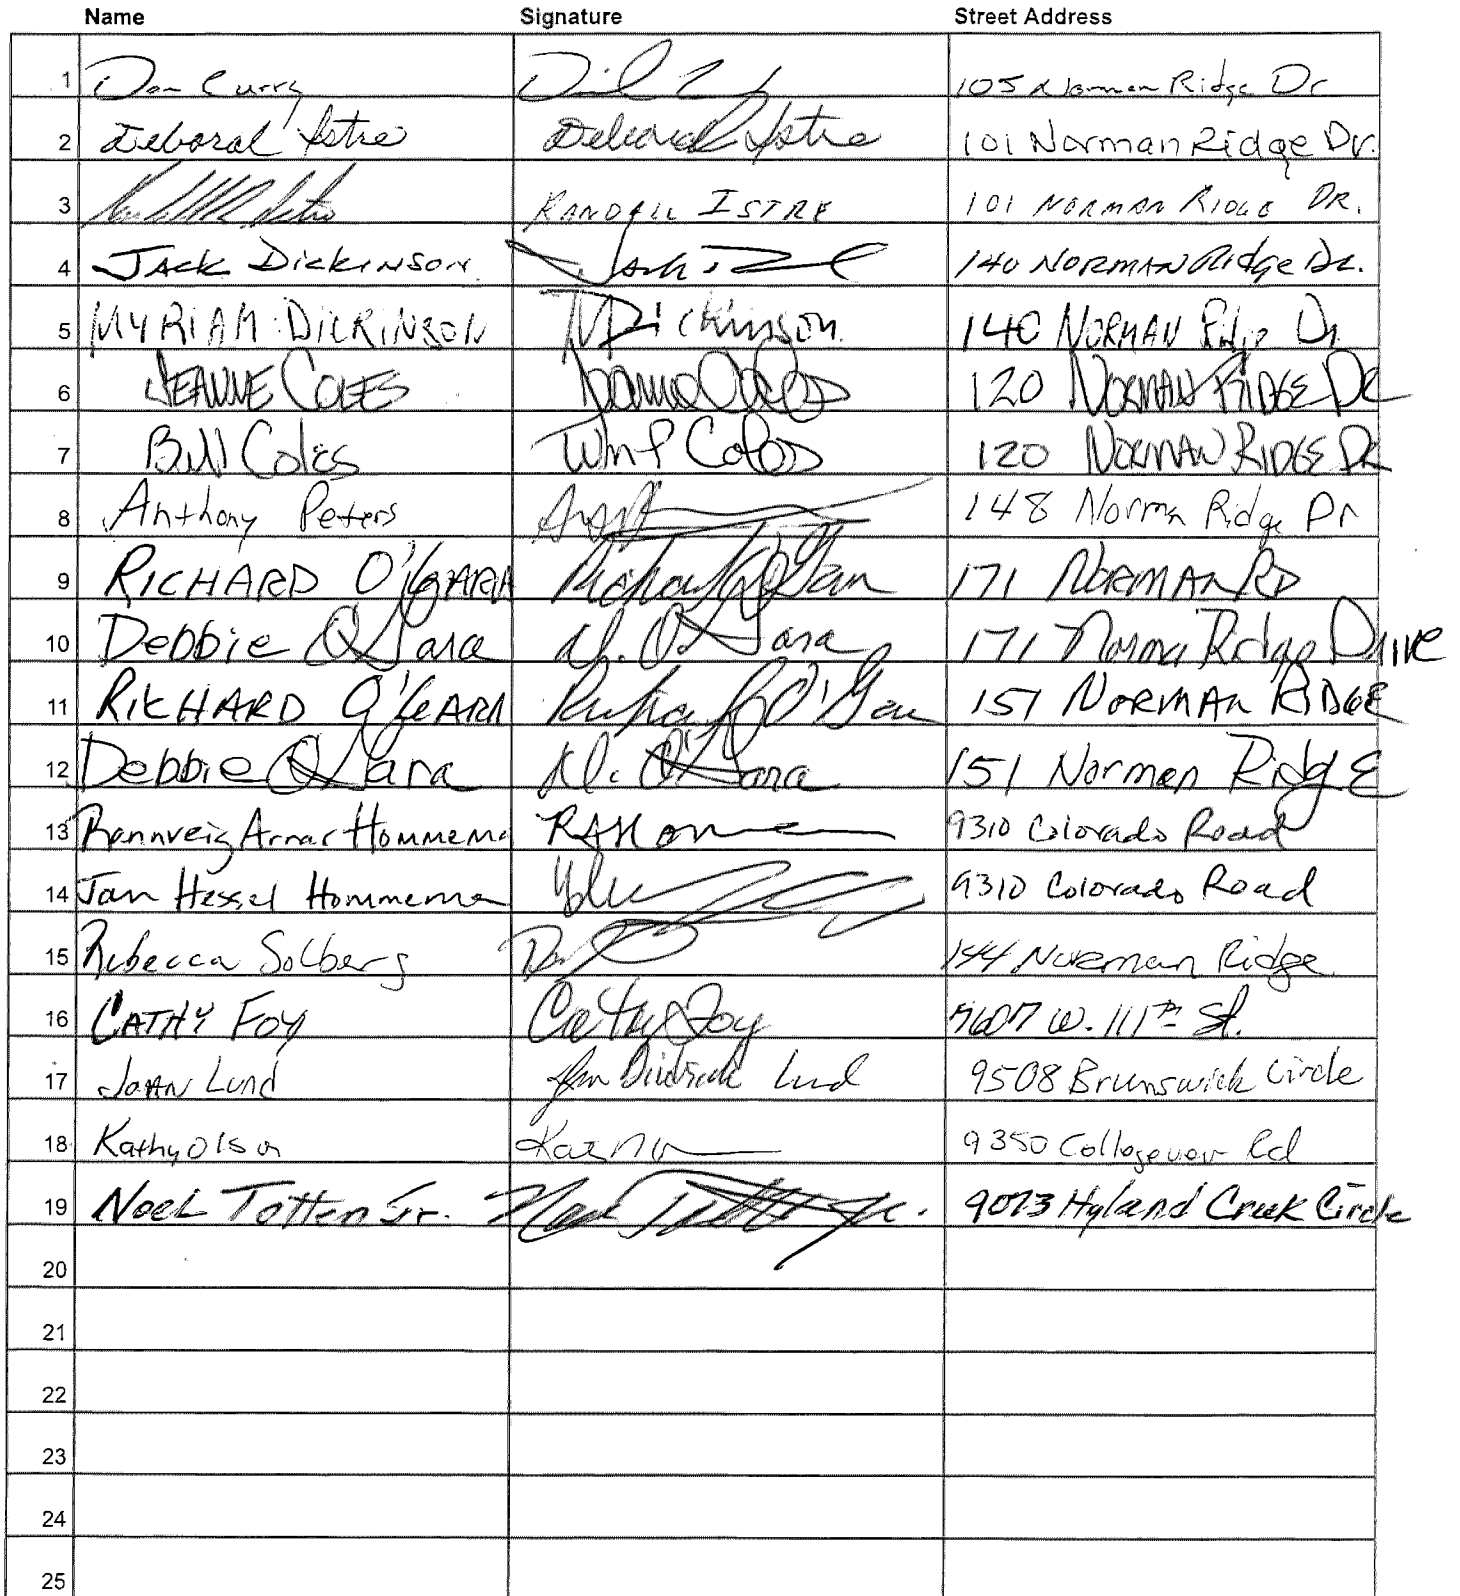 Name Signature Street Address
1 Dan Curry 105 Norman Ridge Dr
2 Deborah Istre Deborah Istre 101 Norman Ridge Dr.
3 RANDALL ISTRE 101 NORMAN RIDGE DR.
4 JACK DICKINSON 140 NORMAN Ridge Dr.
5 MYRIAM DICKINSON MDickinson 140 NORMAN Ridge Dr
6 JEANNE COLES Jeanne Coles 120 NORMAN RIDGE DR
7 Bill Coles Wm P Coles 120 NORMAN RIDGE DR
8 Anthony Peters 148 Norman Ridge Dr
9 RICHARD O'GARA Richard O'Gara 171 NORMAN RD
10 Debbie O'Gara D. O'Gara 171 Norman Ridge Drive
11 RICHARD O'GEARA Richard O'Gara 151 NORMAN RIDGE
12 Debbie O'Gara D. O'Gara 151 Norman RidgE
13 Rannveig Arnar Hommema 9310 Colorado Road
14 Jan Hessel Hommema 9310 Colorado Road
15 Rebecca Solberg 144 Norman Ridge
16 CATHY FOY Cathy Foy 5607 W. 111th St.
17 JoAnn Lund Lund 9508 Brunswick Circle
18 Kathy Olson 9350 Collegeview Rd
19 Noel Totten Jr. Noel Totten Jr. 9073 Hyland Creek Circle
20
21
22
23
24
25